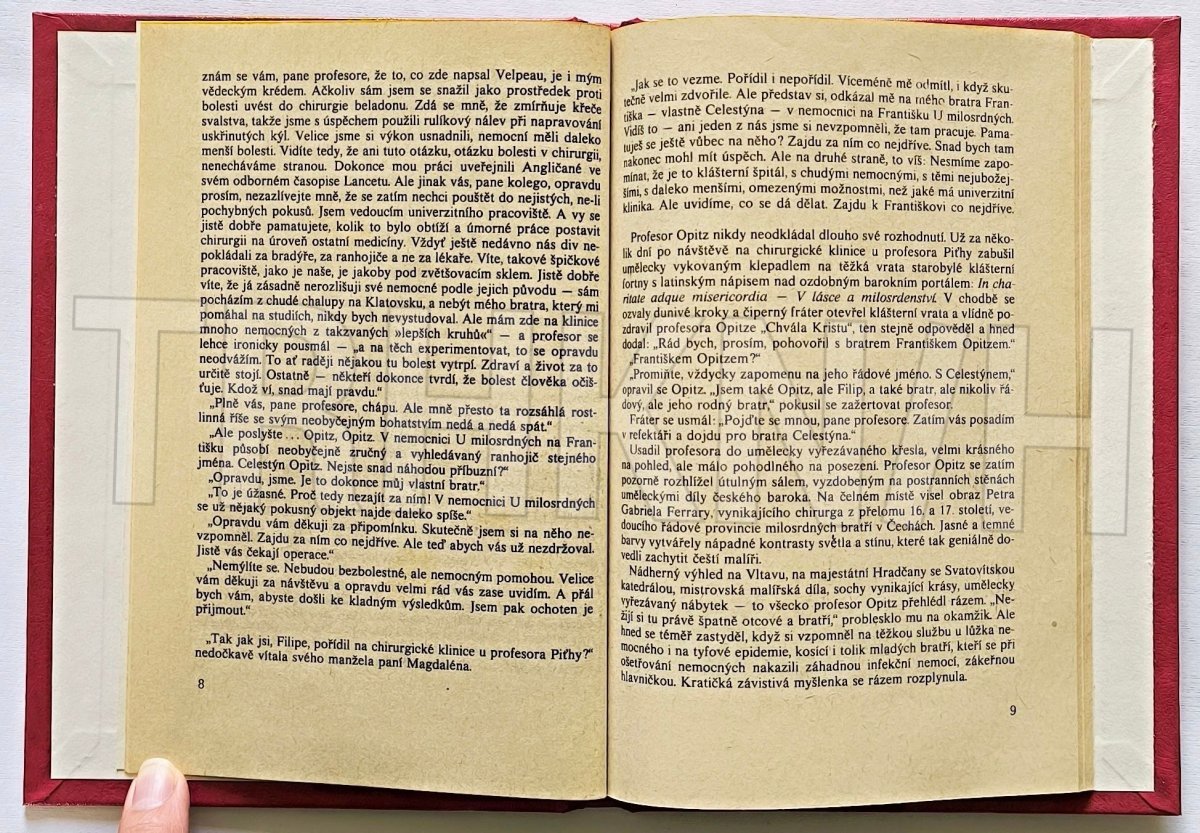 znám se vám, pane profesore, že to, co zde napsal Velpeau, je i mým
vědeckým krédem. Ačkoliv sám jsem se snažil jako prostředek proti
bolesti uvést do chirurgie beladonu. Zdá se mně, že zmírňuje křeče
svalstva, takže jsme s úspěchem použili rulíkový nálev při napravování
uskřinutých kýl. Velice jsme si výkon usnadnili, nemocní měli daleko
menší bolesti. Vidíte tedy, že ani tuto otázku, otázku bolesti v chirurgii,
nenecháváme stranou. Dokonce mou práci uveřejnili Angličané ve
svém odborném časopise Lancetu. Ale jinak vás, pane kolego, opravdu
prosím, nezazlívejte mně, že se zatím nechci pouštět do nejistých, ne-li
pochybných pokusů. Jsem vedoucím univerzitního pracoviště. A vy se
jistě dobře pamatujete, kolik to bylo obtíží a úmorné práce postavit
chirurgii na úroveň ostatní medicíny. Vždyť ještě nedávno nás div ne-
pokládali za bradýře, za ranhojiče a ne za lékaře. Víte, takové špičkové
pracoviště, jako je naše, je jakoby pod zvětšovacím sklem. Jistě dobře
víte, že já zásadně nerozlišuji své nemocné podle jejich původu — sám
pocházím z chudé chalupy na Klatovsku, a nebýt mého bratra, který mi
pomáhal na studiích, nikdy bych nevystudoval. Ale mám zde na klinice
mnoho nemocných z takzvaných »lepších kruhů«“ — a profesor se
lehce ironicky pousmál — „a na těch experimentovat, to se opravdu
neodvážím. To ať raději nějakou tu bolest vytrpí. Zdraví a život za to
určitě stojí. Ostatně — někteří dokonce tvrdí, že bolest člověka očiš-
ťuje. Kdož ví, snad mají pravdu.“
„Plně vás, pane profesore, chápu. Ale mně přesto ta rozsáhlá rost-
linná říše se svým neobyčejným bohatstvím nedá a nedá spát.“
„Ale poslyšte... Opitz, Opitz. V nemocnici U milosrdných na Fran-
tišku působí neobyčejně zručný a vyhledávaný ranhojič stejného
jména. Celestýn Opitz. Nejste snad náhodou příbuzní?“
„Opravdu, jsme. Je to dokonce můj vlastní bratr.“
„To je úžasné. Proč tedy nezajít za ním! V nemocnici U milosrdných
se už nějaký pokusný objekt najde daleko spíše.“
„Opravdu vám děkuji za připomínku. Skutečně jsem si na něho ne-
vzpomněl. Zajdu za ním co nejdříve. Ale teď abych vás už nezdržoval.
Jistě vás čekají operace.“
„Nemýlíte se. Nebudou bezbolestné, ale nemocným pomohou. Velice
vám děkuji za návštěvu a opravdu velmi rád vás zase uvidím. A přál
bych vám, abyste došli ke kladným výsledkům. Jsem pak ochoten je
přijmout.“
„Tak jak jsi, Filipe, pořídil na chirurgické klinice u profesora Piťhy?“
nedočkavě vítala svého manžela paní Magdaléna.
8
„Jak se to vezme. Pořídil i nepořídil. Víceméně mě odmítl, i když sku-
tečně velmi zdvořile. Ale představ si, odkázal mě na mého bratra Fran-
tiška — vlastně Celestýna — v nemocnici na Františku U milosrdných.
Vidíš to — ani jeden z nás jsme si nevzpomněli, že tam pracuje. Pama-
tuješ se ještě vůbec na něho? Zajdu za ním co nejdříve. Snad bych tam
nakonec mohl mít úspěch. Ale na druhé straně, to víš: Nesmíme zapo-
mínat, že je to klášterní špitál, s chudými nemocnými, s těmi nejubožej-
šími, s daleko menšími, omezenými možnostmi, než jaké má univerzitní
klinika. Ale uvidíme, co se dá dělat. Zajdu k Františkovi co nejdříve.
Profesor Opitz nikdy neodkládal dlouho své rozhodnutí. Už za něko-
lik dní po návštěvě na chirurgické klinice u profesora Piťhy zabušil
umělecky vykovaným klepadlem na těžká vrata starobylé klášterní
fortny s latinským nápisem nad ozdobným barokním portálem: In cha-
ritate adque misericordia — V lásce a milosrdenství. V chodbě se
ozvaly dunivé kroky a čiperný fráter otevřel klášterní vrata a vlídně po-
zdravil profesora Opitze „Chvála Kristu“, ten stejně odpověděl a hned
dodal: „Rád bych, prosím, pohovořil s bratrem Františkem Opitzem.“
„Františkem Opitzem?“
„Promiňte, vždycky zapomenu na jeho řádové jméno. S Celestýnem,“
opravil se Opitz. „Jsem také Opitz, ale Filip, a také bratr, ale nikoliv řá-
dový, ale jeho rodný bratr,“ pokusil se zažertovat profesor.
Fráter se usmál: „Pojďte se mnou, pane profesore. Zatím vás posadím
v refektáři a dojdu pro bratra Celestýna.“
Usadil profesora do umělecky vyřezávaného křesla, velmi krásného
na pohled, ale málo pohodlného na posezení. Profesor Opitz se zatím
pozorně rozhlížel útulným sálem, vyzdobeným na postranních stěnách
uměleckými díly českého baroka. Na čelném místě visel obraz Petra
Gabriela Ferrary, vynikajícího chirurga z přelomu 16. a 17. století, ve-
doucího řádové provincie milosrdných bratří v Čechách. Jasné a temné
barvy vytvářely nápadné kontrasty světla a stínu, které tak geniálně do-
vedli zachytit čeští malíři.
Nádherný výhled na Vltavu, na majestátní Hradčany se Svatovítskou
katedrálou, mistrovská malířská díla, sochy vynikající krásy, umělecky
vyřezávaný nábytek — to všecko profesor Opitz přehlédl rázem. „Ne-
žijí si tu právě špatně otcové a bratří,“ problesklo mu na okamžik. Ale
hned se téměř zastyděl, když si vzpomněl na těžkou službu u lůžka ne-
mocného i na tyfové epidemie, kosící i tolik mladých bratří, kteří se při
ošetřování nemocných nakazili záhadnou infekční nemocí, zákeřnou
hlavničkou. Kratičká závistivá myšlenka se rázem rozplynula.
9